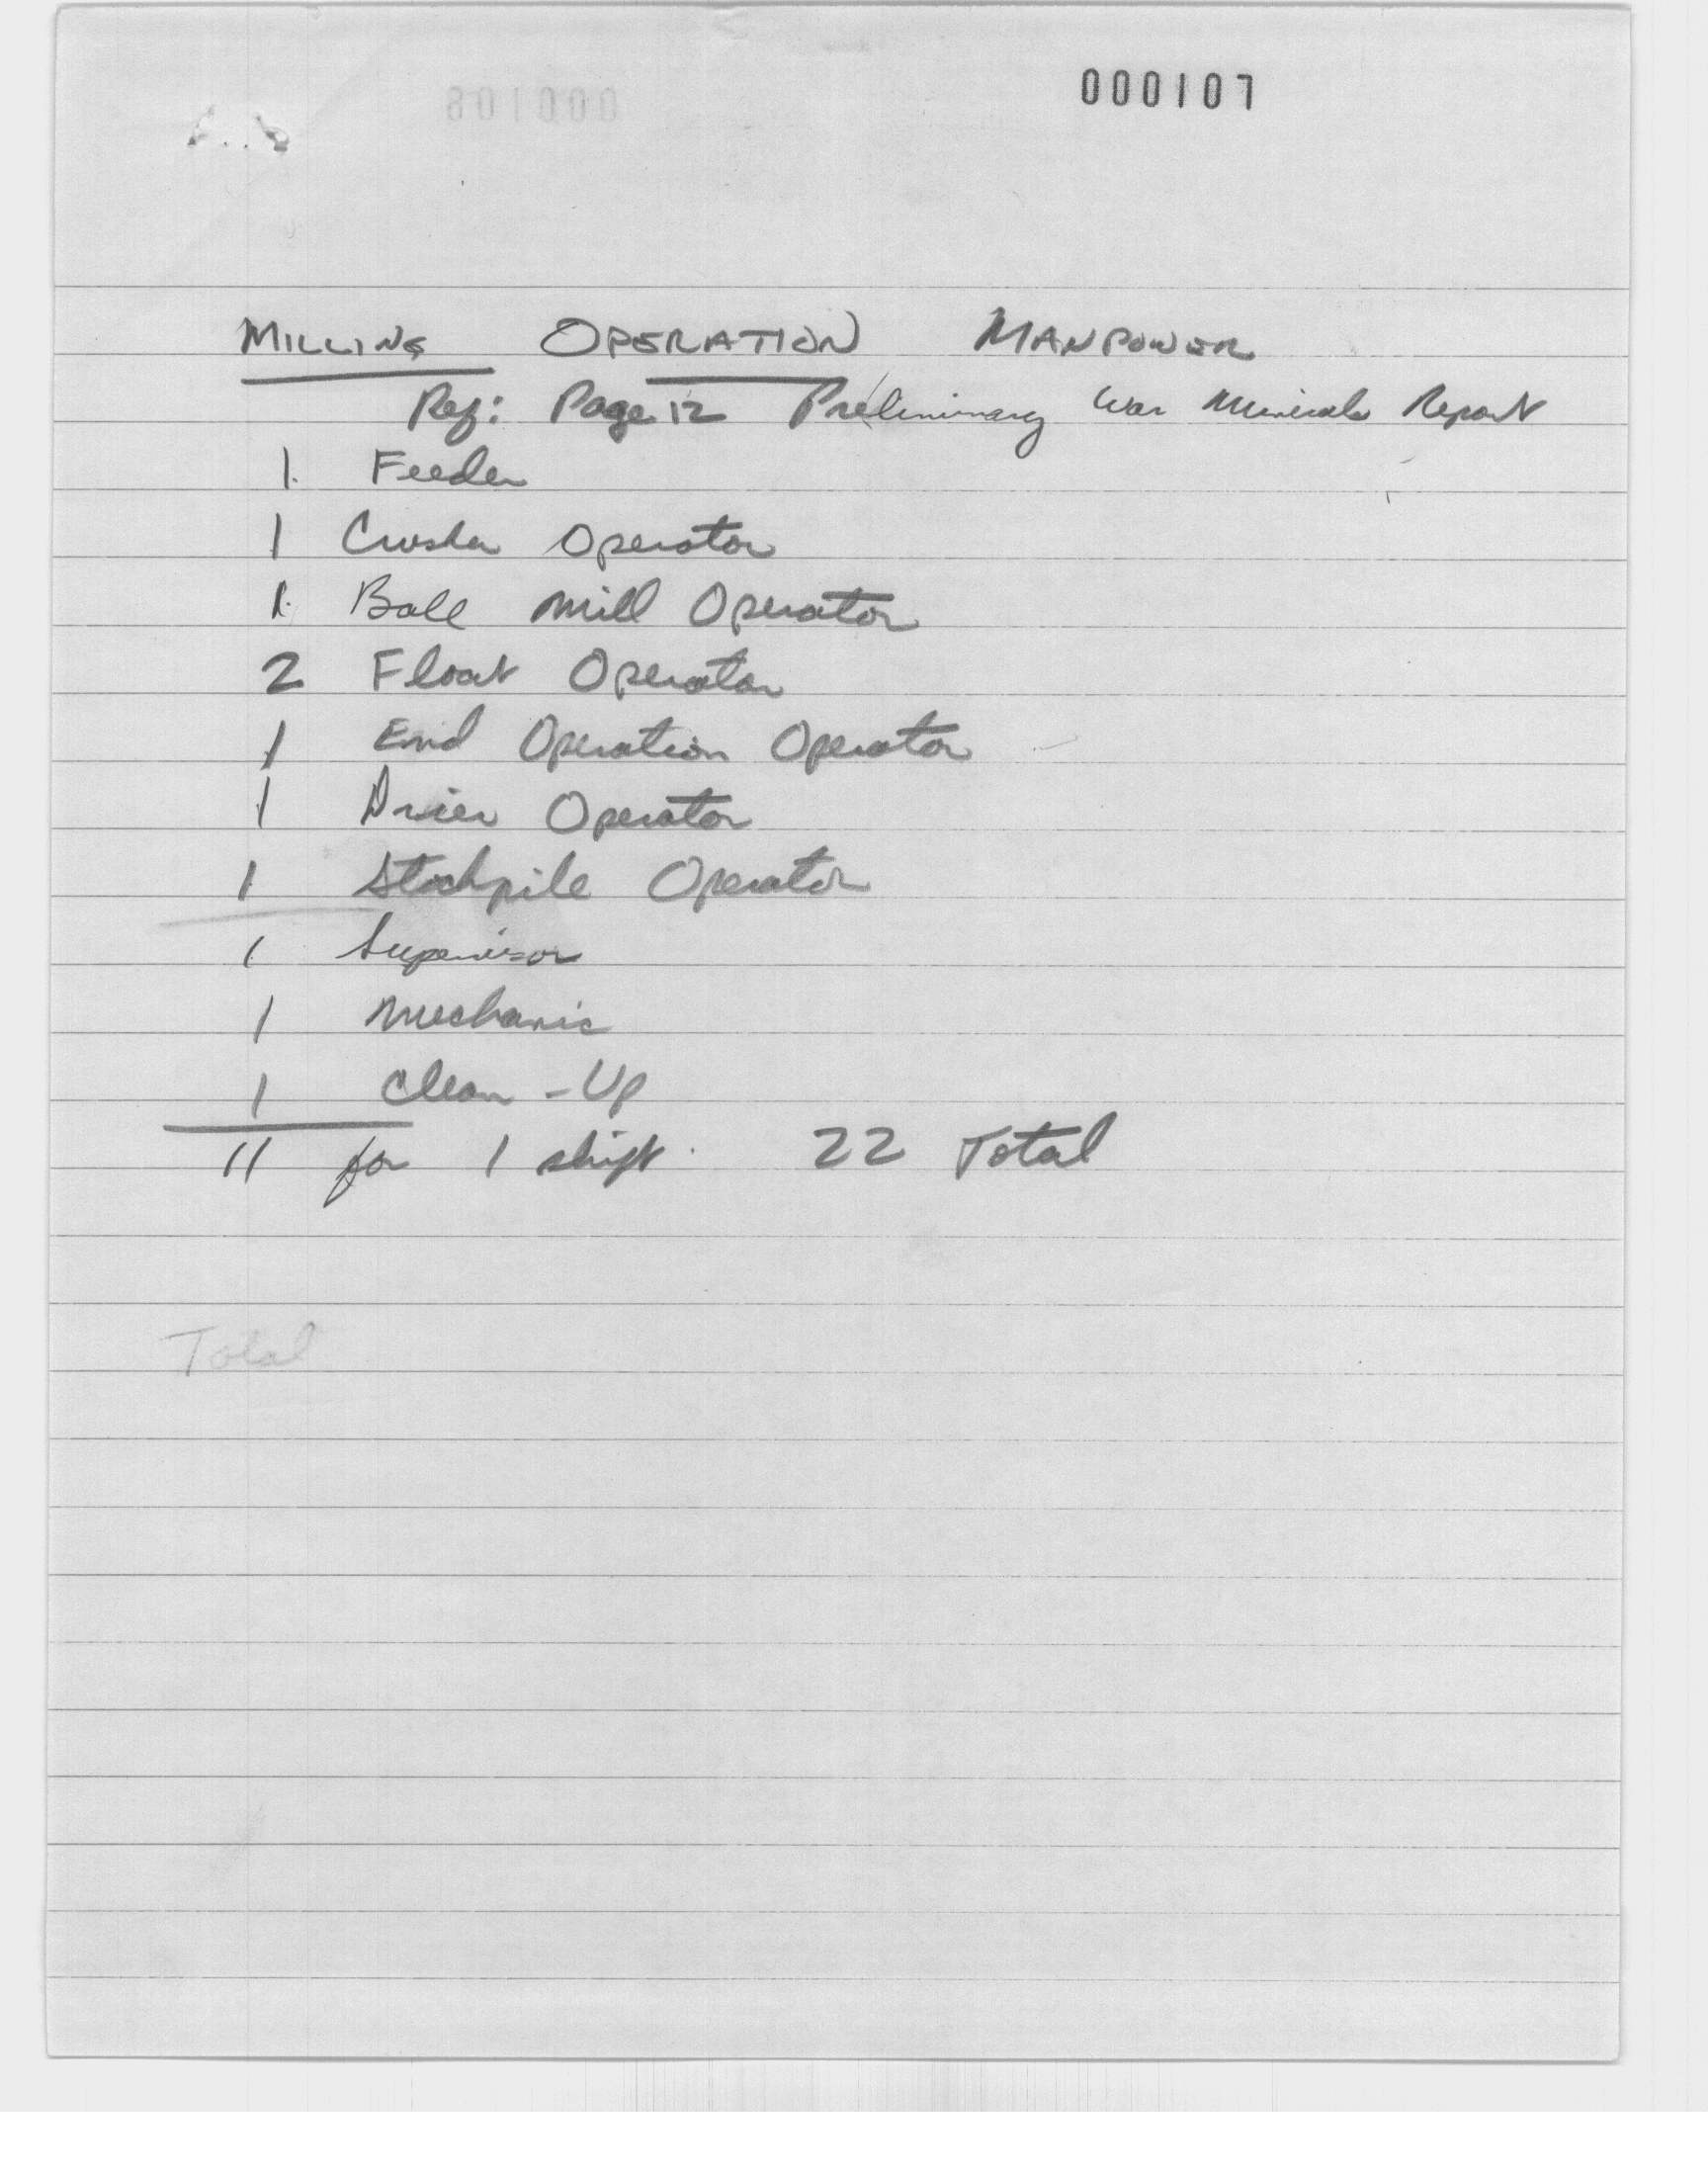 000107
000108
MILLING OPERATION MANPOWER
Ref: Page 12 Preliminary War Minerals Report
1. Feeder
1 Crusher Operator
1. Ball Mill Operator
2 Float Operator
1 End Operation Operator
1 Drier Operator
1 Stockpile Operator
1 Supervisor
1 Mechanic
1 Clean-Up
11 for 1 shift. 22 Total
Total